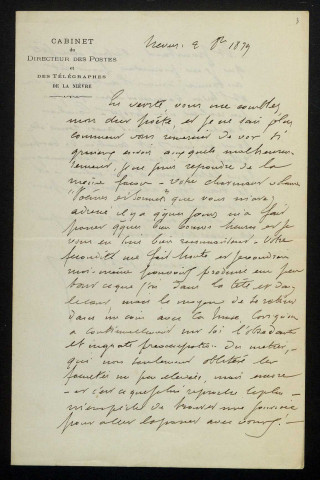 CABINET
du
DIRECTEUR DES POSTES
et
DES TÉLÉGRAPHES
DE LA NIÈVRE
Nevers 2 1879
En vérité, vous me comblez
mon cher poète et je ne sais plus
comment vous remercier de vos si
gracieux envois auxquels malheureu-
sement je ne puis répondre de la
même façon - Votre charmant volume
"Poèmes et Sonnets" que vous m'avez
adressé il y a qques jours m'a fait
passer qques bien bonnes heures et je
vous en suis bien reconnaissant - Votre
fécondité me fait honte et je voudrais
moi-même pouvoir produire un peu
tout ce que j'ai dans la tête et dans
le cœur, mais le moyen de
dans un coin avec la Muse, lorsqu'on
a continuellement sur soi l'obsédante
et ingrate préoccupation du métier,
qui non seulement oblitère les
facultés un peu élevées, mais encore
- et c'est ce que je lui reproche le plus -
m'empêche de trouver une journée
pour aller la passer avec vous! -